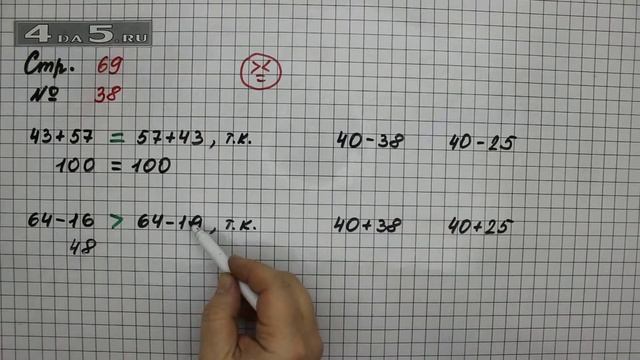 4 DA 5.RU
Стр. 69
№ 38
> <
=
43+57 = 57+43, т.к.
100 = 100
40-38
40-25
64-16 > 64-19, т.к.
48
40+38
40+25